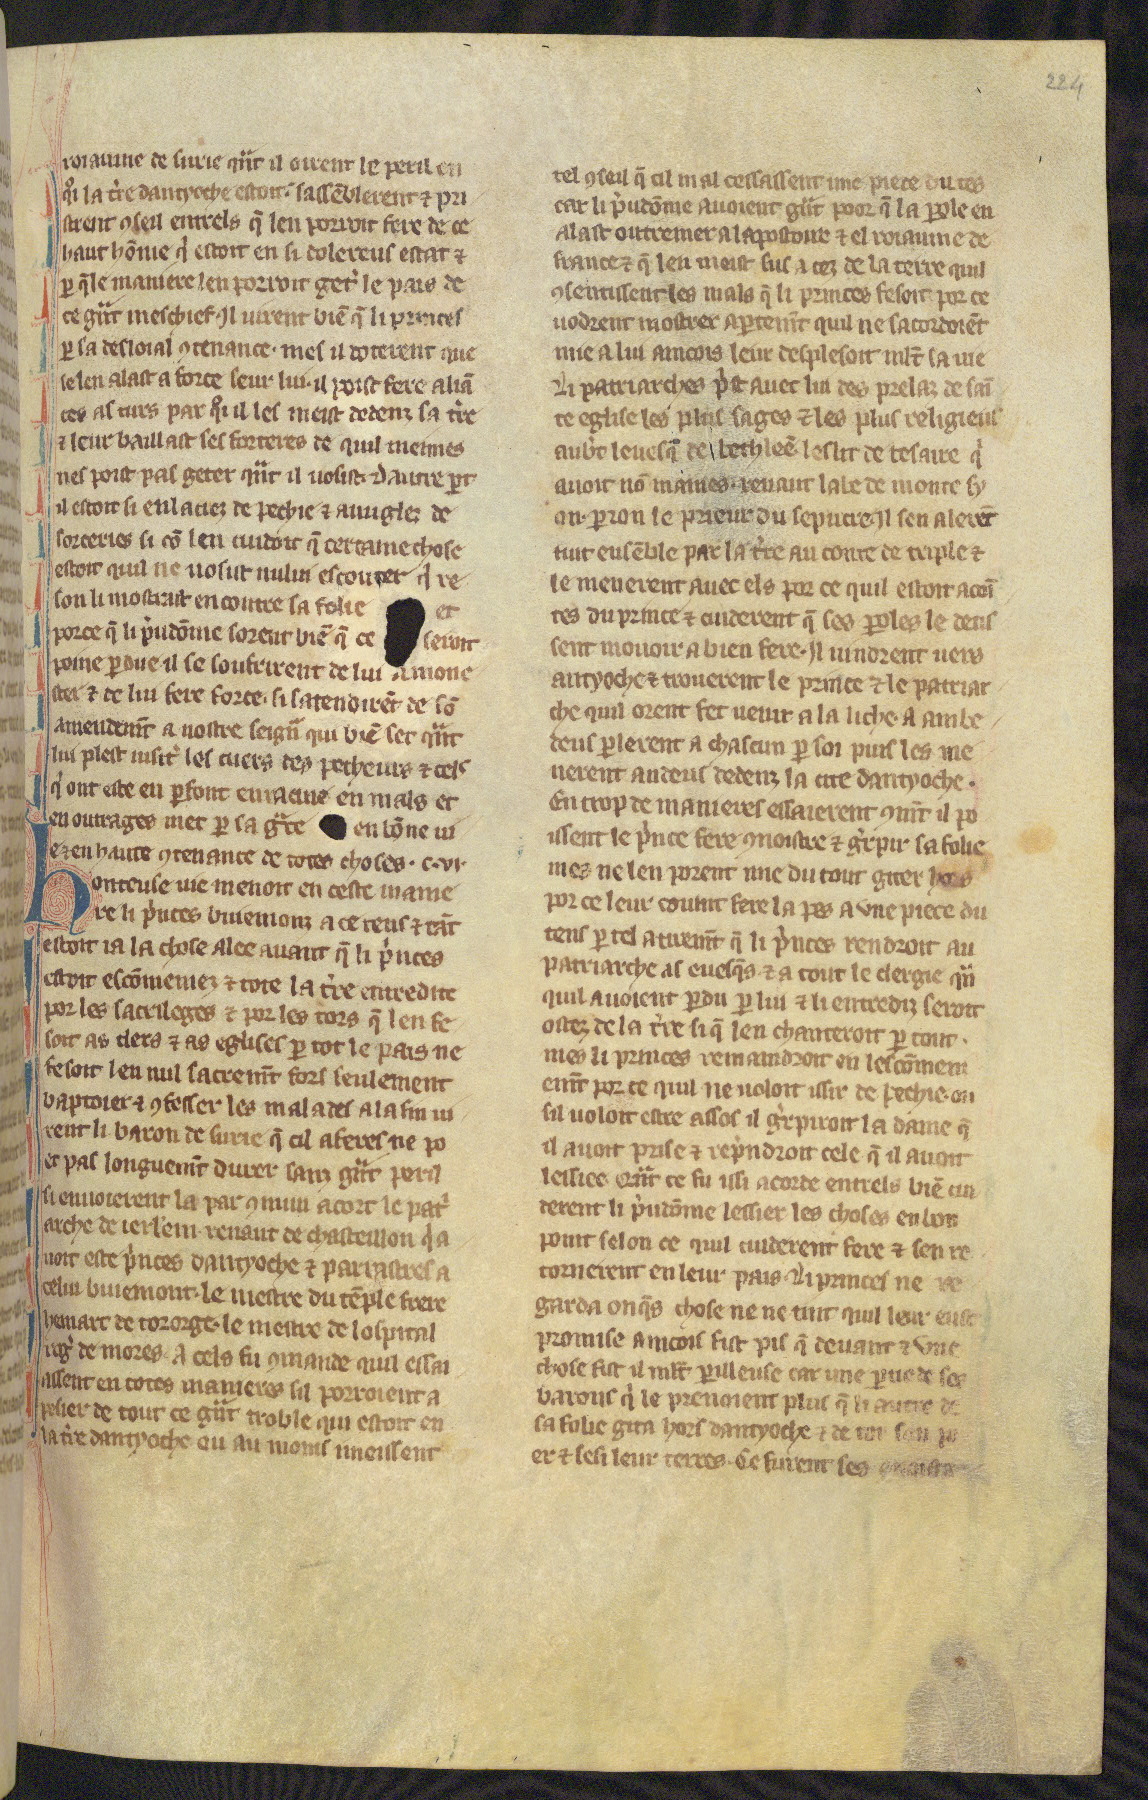 224
roiaume de surie qũt il oirent le peril en
q̃i la t̃re dantyoche estoit. sassẽblerent ⁊ pri
strent ꝯseil entrels q̃ len porroit fere de ce
haut hõme q̇ estoit en si dolereus estat ⁊
ꝑ q̃le maniere len porroit get̃ le pais de
ce gñt meschief. Il virent biẽ q̃ li princes
ꝑ sa desloial ꝯtenance. mes il doterent que
se len alast a force seur lui. il poist fere aliã
ces as turs par q̃i il les meist dedenz sa t̃re
⁊ leur baillast ses forteres de quil meimes
nes poist pas geter qũt il vosist. Dautre ꝑt
il estoit si enlaciez de pechie ⁊ avuglez de
sorceries si cõ len cuidoit q̃ certaine chose
estoit quil ne vosist nului escouter q̇ re
son li mostrast encontre sa folie et
porce q̃ li p̃udõme sorent biẽ q̃ ce seroit
poine ꝑdue il se soufrirent de lui amone
ster ⁊ de lui fere force. si satendirẽt de lõ
amendem̃t a nostre seign̄ qui biẽ set qũt
lui plest visit̃ les cuers des pecheurs ⁊ cels
q̇ ont este en ꝑfont enracine en mals et
en outrages met ꝑ sa gr̃ce en bõne vi
e ⁊ en haute ꝯtenance de totes choses. c. vi
Honteuse vie menoit en ceste manie
re li p̃nces buiemonz a ce tens ⁊ tãt
estoit ia la chose alee avant q̃ li p̃nces
estoit escõmeniez ⁊ tote la t̃re entredite
por les sacrileges ⁊ por les tors q̃ len fe
soit as clers ⁊ as eglises ꝑ tot le pais ne
fesoit len nul sacrem̃t fors seulement
baptoier ⁊ ꝯfesser les malades a la fin vi
rent li baron de surie q̃ cil aferes ne po
et pas longuem̃t durer sanz gñt peril
si envoierent la par ꝯmun acort le pat̃
arche de ierl'em. renaut de chasteillon q̇ a
voit este p̃nces dantyoche ⁊ parrastres a
celui buiemont. le mestre du tẽple frere
hernart de tororge. le mestre de lospital
rog̃ de mores. A cels fu ꝯmande quil essai
assent en totes manieres sil porroient a
pesier de tout ce gñt troble qui estoit en
la t̃re dantyoche ou au moins meissent
tel ꝯseil q̃ cil mal cessassent une piece du tẽs
car li p̃udõme avoient gñt poor q̃ la ꝑole en
alast outremer a lapostoire ⁊ el roiaume de
france ⁊ q̃ len meist sus a cez de la terre quil
ꝯsentissent les mals q̃ li princes fesoit. por ce
vodrent mostrer aꝑtem̃t quil ne sacordoiẽt
mie a lui amcois leur desplesoit mlt̃ sa vie
Li patriarches p̃st avec lui des prelaz de sai
te eglise les plus sages ⁊ les plus religieus
aub̃t levesq̃ de bethleẽ. leslit de cesaire q̇
avoit nõ maines. renaut labe de monte sy
on. ꝑron le prieur du sepucre. Il sen alerẽt
tuit ensẽble par la t̃re au conte de triple ⁊
le menerent avec els por ce quil estoit acoi
tes du prince ⁊ cuiderent q̃ ses ꝑoles le deus
sent movoir a bien fere. Il vindrent vers
antyoche ⁊ troverent le prince ⁊ le patriar
che quil orent fet venir a la liche. A ambe
deus ꝑlerent a chascun ꝑ soi puis les me
nerent andeus dedenz la cite dantyoche.
En trop de manieres essaierent ꝯm̃t il po
issent le p̃nce fere ꝯnoistre ⁊ g̃rpir sa folie
mez ne len porent mie du tout giter hors
por ce leur covint fere la pes a une piece du
tens ꝑ tel atirem̃t q̃ li p̃nces rendroit au
patriarche as evesq̃s ⁊ a tout le clergie q̃n
quil avoient ꝑdu ꝑ lui ⁊ li entrediz seroit
ostez de la t̃re si q̃ len chanteroit ꝑ tout.
mes li princes remaindroit en lescõmeni
em̃t por ce quil ne voloit issir de pechie. ou
sil voloit estre assos il g̃rpiroit la dame q̃
il avoit prise ⁊ rep̃ndroit cele q̃ il avoit
lessiee. Qũt ce fu issi acorde entrels biẽ cui
derent li p̃udõme lessier les choses en bon
point selon ce quil cuiderent fere ⁊ sen re
tornerent en leur pais. Li princes ne re
garda onq̃s chose ne ne tint quil leur eust
promise amcois fist pis q̃ devant ⁊ une
chose fist il mlt̃ ꝑilleuse car une ꝑtie de ses
barons q̇ le prenoient plus q̃ li autre de
sa folie gita hors dantyoche ⁊ de tot son po
er ⁊ sesi leur terres. Ce furent ses